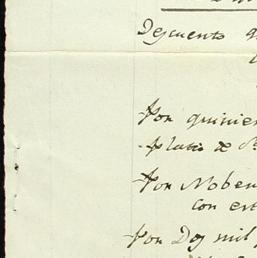 Descuento
Por quinien
plata de
Por Noben
con es
Por Dos mil